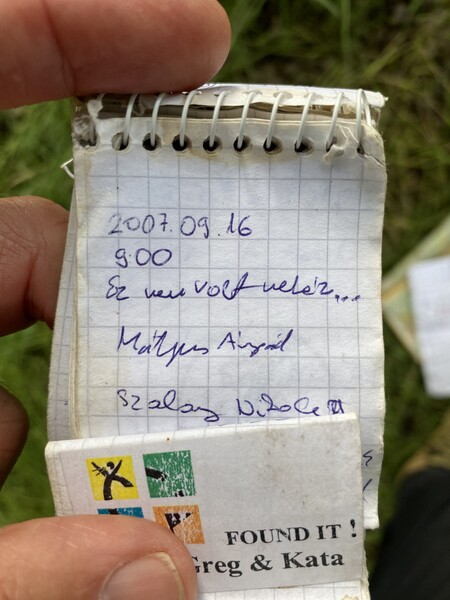 2007.09.16
9:00
Ez nem volt nehéz...
Mátyus Árpád
Szalay Nikolett
FOUND IT !
Greg & Kata